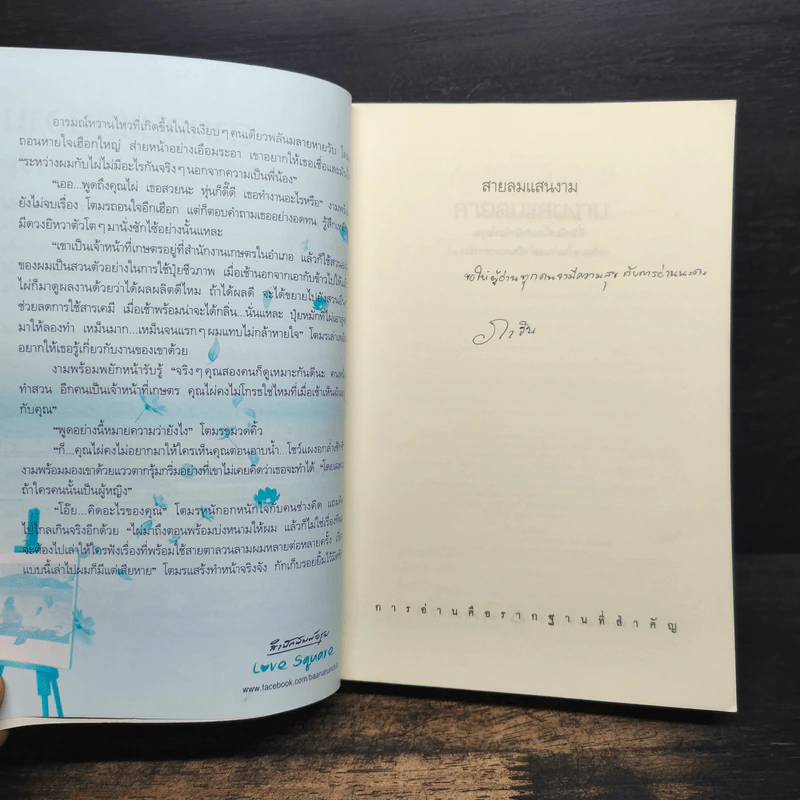 อารมณ์หวานไหวที่เกิดขึ้นในใจเงียบๆ คนเดียวพลันมลายหายวับ
ถอนหายใจเฮือกใหญ่ ส่ายหน้าอย่างเอือมระอา เขาอยากให้เธอเชื่อและ
“ระหว่างผมกับไผ่ไม่มีอะไรกันจริงๆ นอกจากความเป็นพี่น้อง”
“เออ...พูดถึงคุณไผ่ เธอสวยนะ หุ่นก็ดี๊ดี เธอทำงานอะไรหรือ”
ยังไม่จบเรื่อง โตมรถอนใจอีกเฮือก แต่ก็ตอบคำถามเธออย่างอดทน รู้สึก
มีดวงยิหวาตัวโตๆ มานั่งซักไซ้อย่างนั้นแหละ
“เขาเป็นเจ้าหน้าที่เกษตรอยู่ที่สำนักงานเกษตรในอำเภอ แล้วก็ใช้สวน
ของผมเป็นสวนตัวอย่างในการใช้ปุ๋ยชีวภาพ เมื่อเช้านอกจากเอากับข้าวไป
ไผ่ก็มาดูผลงานด้วยว่าได้ผลผลิตดีไหม ถ้าได้ผลดี จะได้ขยายไปยังสวนอื่น
ช่วยลดการใช้สารเคมี เมื่อเช้าพร้อมน่าจะได้กลิ่น...นั่นแหละ ปุ๋ยหมักที่ไผ่เอา
มาให้ลองทำ เหม็นมาก...เหม็นจนแรกๆ ผมแทบไม่กล้าหายใจ” โตมรเล่า
อยากให้เธอรู้เกี่ยวกับงานของเขาด้วย
งามพร้อมพยักหน้ารับรู้ “จริงๆ คุณสองคนก็ดูเหมาะกันดีนะ
ทำสวน อีกคนเป็นเจ้าหน้าที่เกษตร คุณไผ่คงไม่โกรธใช่ไหมที่เมื่อเช้าเห็นฉัน
กับคุณ”
“พูดอย่างนี้หมายความว่ายังไง” โตมรขมวดคิ้ว
“ก็...คุณไผ่คงไม่อยากมาให้ใครเห็นคุณตอนอาบน้ำ...โชว์แผงอกล่ำ
งามพร้อมมองเขาด้วยแววตากรุ้มกริ่มอย่างที่เขาไม่เคยคิดว่าเธอจะทำได้
ถ้าใครคนนั้นเป็นผู้หญิง”
“โอ๊ย...คิดอะไรของคุณ” โตมรหนักอกหนักใจกับคนช่างคิด
ไปไกลเกินจริงอีกด้วย “ไผ่มาถึงตอนพร้อมบ่งหนามให้ผม แล้วก็ไม่ใช่เรื่อง
จะต้องไปเล่าให้ใครฟังเรื่องที่พร้อมใช้สายตาลวนลามผมหลายต่อหลายครั้ง
แบบนี้เล่าไปผมก็มีแต่เสียหาย” โตมรแสร้งทำหน้าจริงจัง กักเก็บรอยยิ้มไว้
Love Square
www.facebook.com/baan
สายลมแสนงาม
ขอให้ผู้อ่านทุกคนจงมีความสุข กับการอ่านนะคะ
ภาวิน
การอ่านคือรากฐานที่สำคัญ